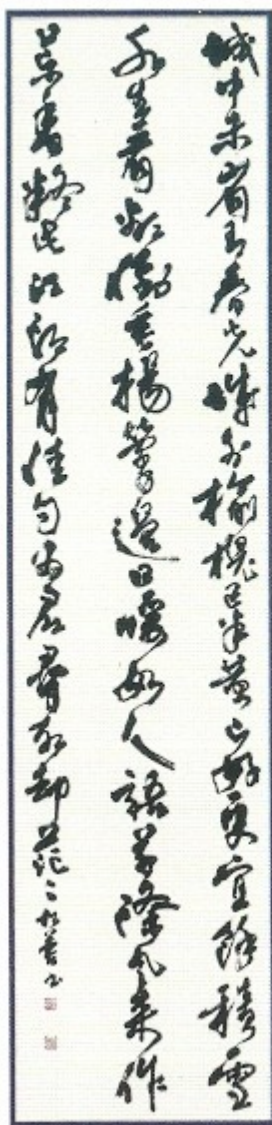 城中未省有春光城外榆槐已半黄山好更宜餘積雪
水生看欲到垂楊鶯邊日暖如人語草際風來作
藥香疑此江頭有佳句为君尋取却茫々